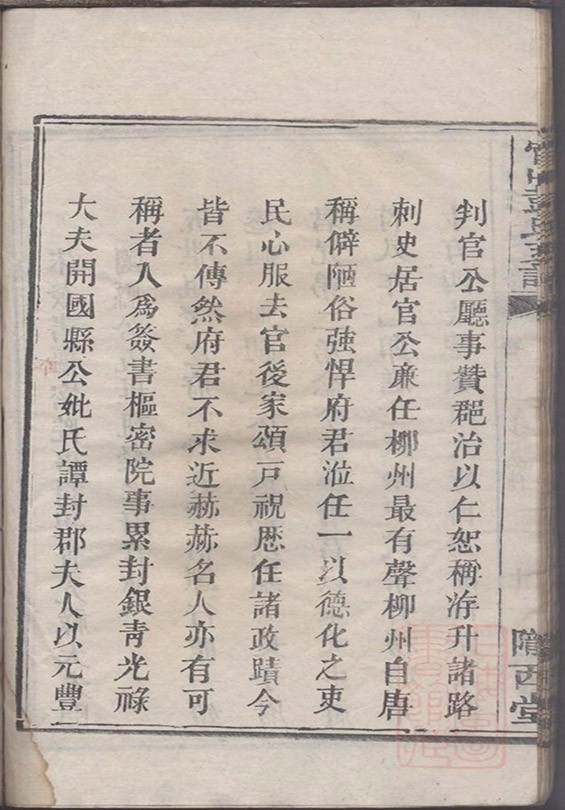 判官公廳事贊郡治以仁恕稱洊升諸路
刺史居官公廉任柳州最有聲柳州自唐
稱僻陋俗強悍府君涖任一以德化之吏
民心服去官後家頌戸祝歷任諸政蹟今
皆不傳然府君不求近赫赫名人亦有可
稱者人爲簽書樞密院事累封銀青光祿
大夫開國縣公妣氏譚封郡夫人以元豐
隴西堂